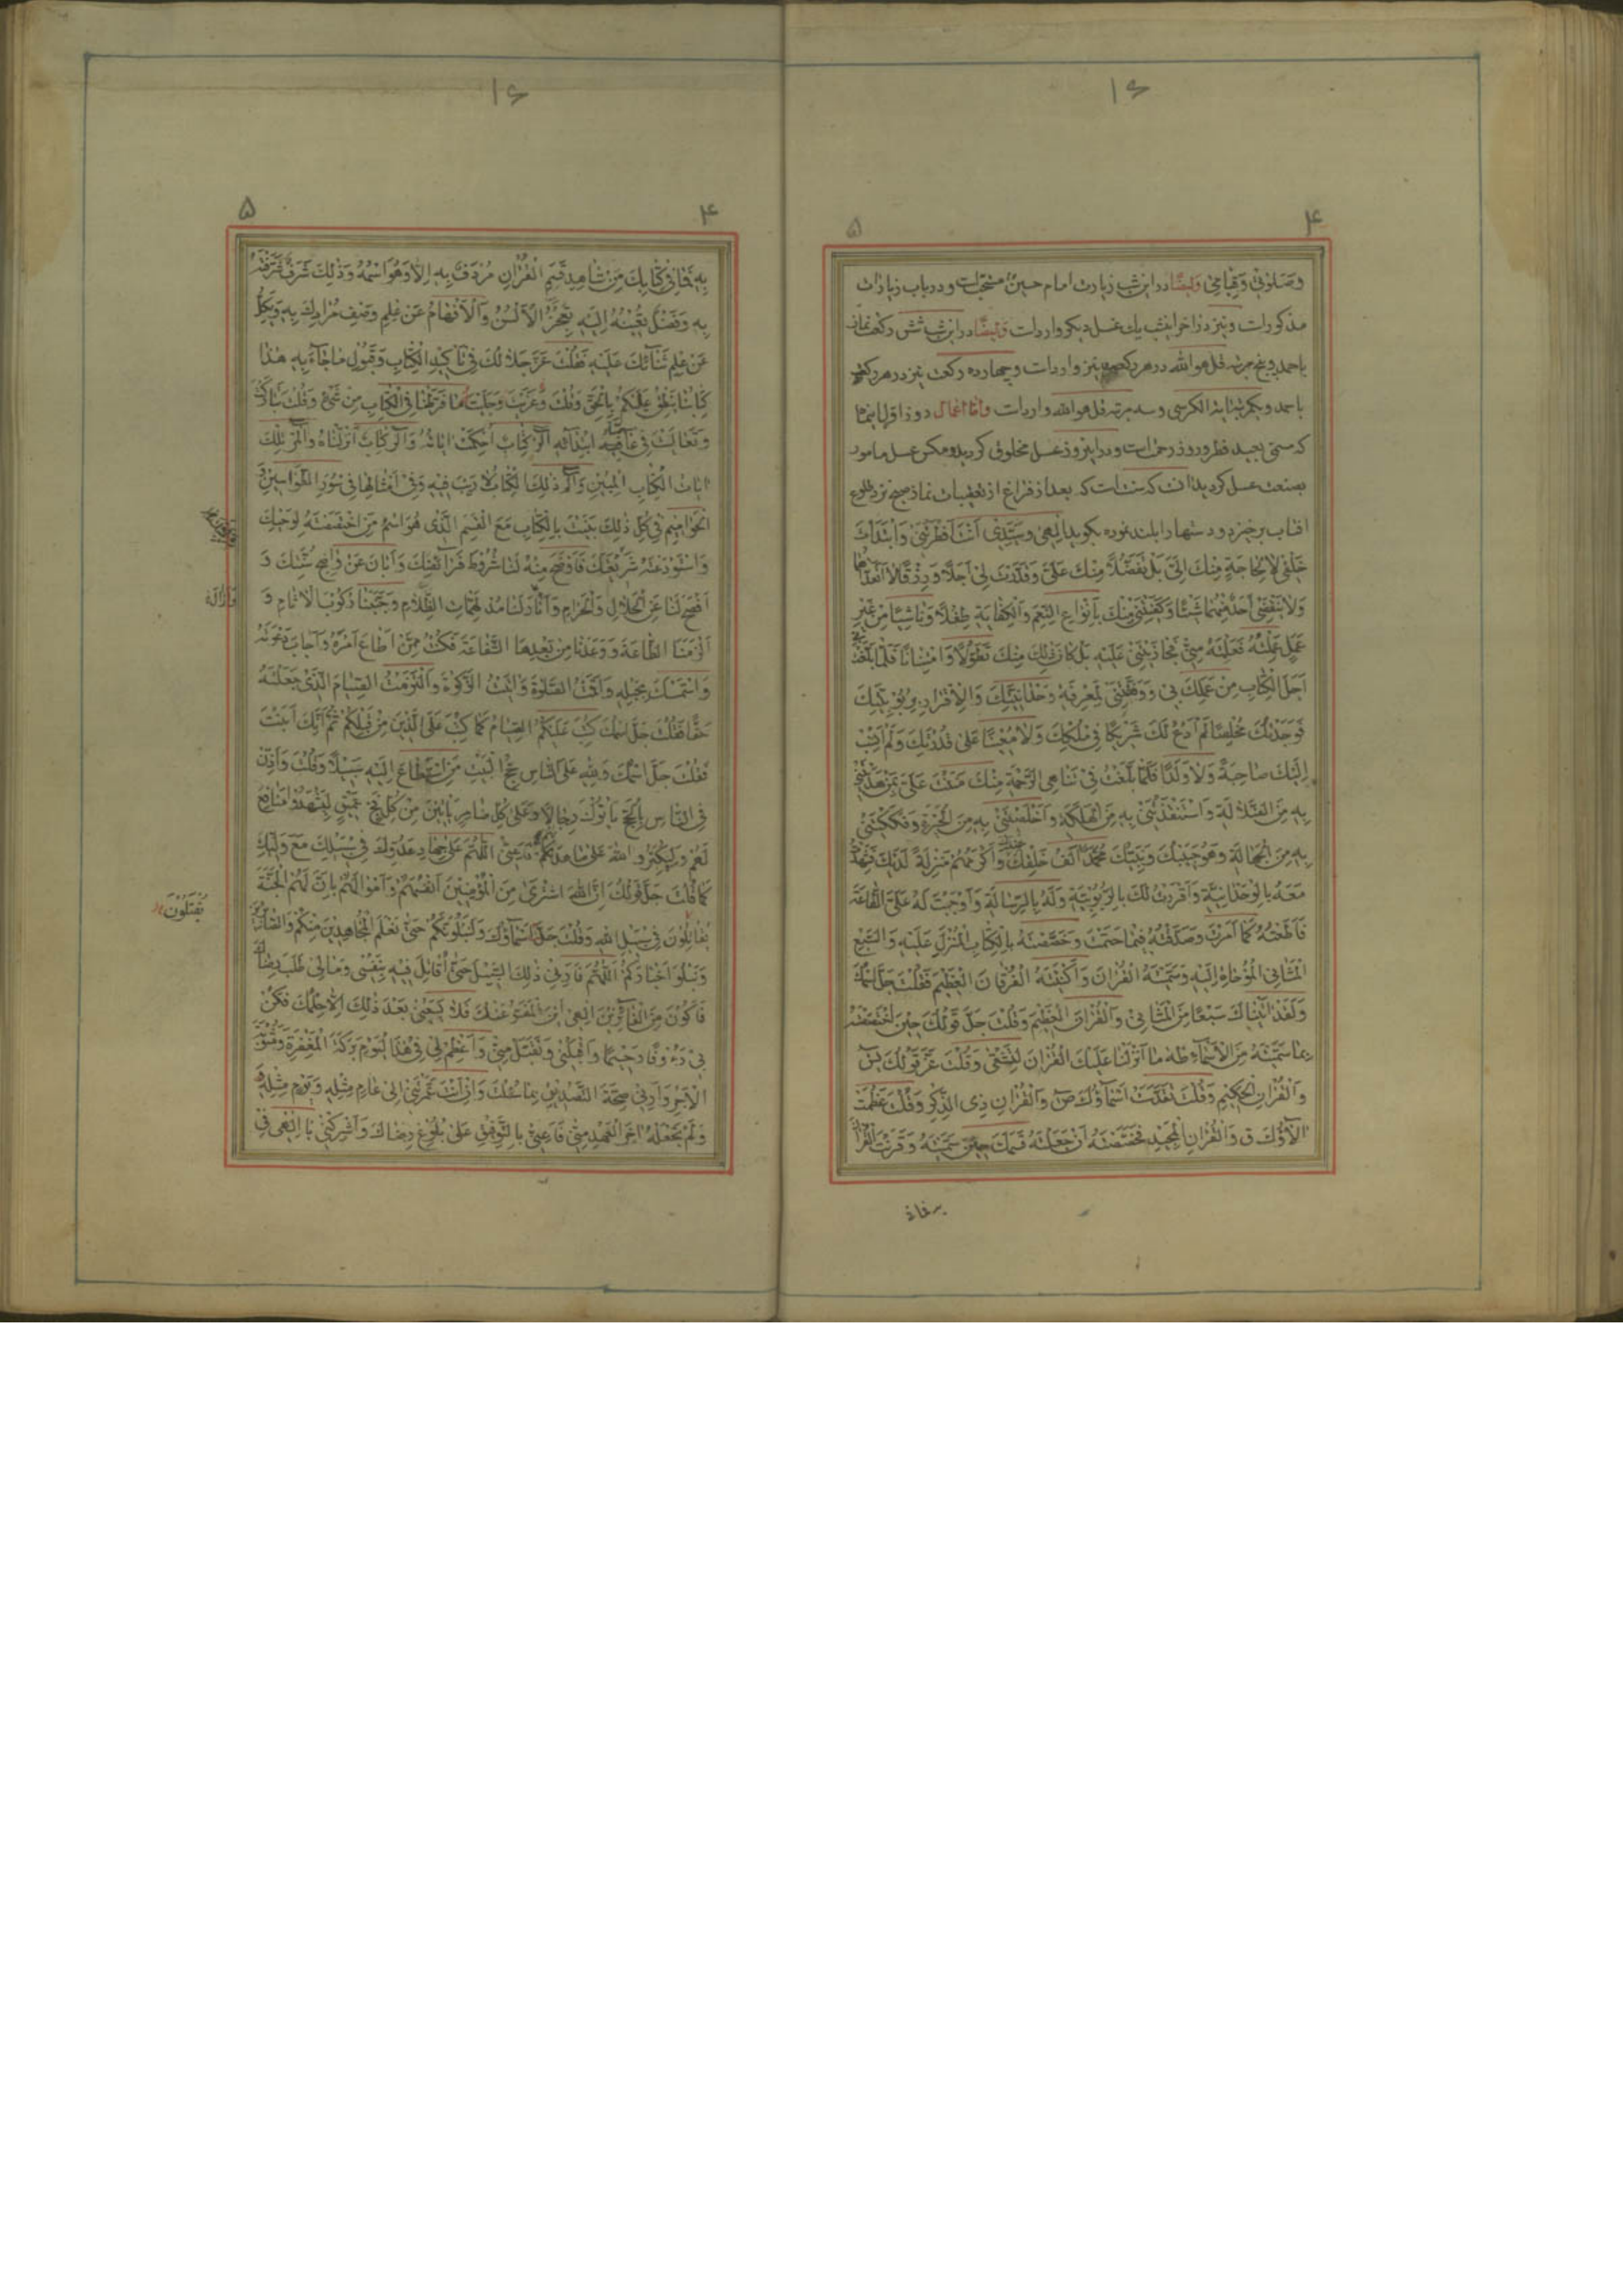 ۱۶
۴
۵
وَصَلوٰتي وَقِيامي وَايضًا در اين شب زيارت امام حسين مستحب است و در باب زيارات
مذكور است و نيز در اخر اين شب يك غسل ديكر وارد است وَايضًا در اين شب شش ركعت نماز
با حمد و پنج مرتبه قل هو الله در هر ركعت نيز وارد است و چهارده ركعت نيز در هر ركعت
باحمد و يكمرتبه اية الكرسى و سه مرتبه قل هو الله وارد است وامّا اعمال روز اوّل اينماه
كه مسمّى بعيد فطر و روز رحمت است و در اين روز غسل
بصنعت غسل كرد بدان كه سنت است كه بعد از فراغ از تعقيبات نماز صبح نزد طلوع
افتاب برخيزد و دستها را بلند نموده بكويد اِلٰهى وَسَيِّدى اَنْتَ فَطَرْتَنى وَابْتَدَأْتَ
خَلْقى لاٰ لِحاجَةٍ مِنْكَ اِلَىَّ بَلْ تَفَضُّلاً مِنْكَ عَلَىَّ وَقَدَّرْتَ لى اَجَلاً وَرِزْقًا لاٰ اَتَعَدّاهُما
وَلاٰ يَنْقُصُنى اَحَدٌ مِنْهُما شَيْئًا وَكَنَفْتَنى مِنْكَ بِاَنْواعِ النِّعَمِ وَالْكِفايَةِ طِفْلاً وَناشِيًا مِنْ غَيْرِ
عَمَلٍ عَمِلْتُهُ فَعَلِمْتَهُ مِنّى فَجازَيْتَنى عَلَيْهِ بَلْ كانَ ذٰلِكَ مِنْكَ تَطَوُّلاً وَامْتِنانًا فَلَمّا بَلَغْتَ بى
اَجَلَ الْكِتابِ مِنْ عِلْمِكَ بى وَوَفَّقْتَنى لِمَعْرِفَةِ وَحْدانِيَّتِكَ وَالْاِقْرارِ بِرُبُوبِيَّتِكَ
فَوَحَّدْتُكَ مُخْلِصًا لَمْ اَدْعُ لَكَ شَريكًا فى مُلْكِكَ وَلاٰ مُعينًا عَلىٰ قُدْرَتِكَ وَلَمْ اَنْسُبْ
اِلَيْكَ صاحِبَةً وَلاٰ وَلَدًا فَلَمّا بَلَغْتَ بى تَناهِىَ الرَّحْمَةِ مِنْكَ مَنَنْتَ عَلَىَّ بِمَنْ هَدَيْتَنى
بِهِ مِنَ الضَّلاٰلَةِ وَاسْتَنْقَذْتَنى بِهِ مِنَ الْهَلَكَةِ وَاَخْلَصْتَنى بِهِ مِنَ الْحَيْرَةِ وَفَكَكْتَنى
بِهِ مِنَ الْجَهالَةِ وَهُوَ حَبيبُكَ وَنَبِيُّكَ مُحَمَّدٌ اَزْلَفُ خَلْقِكَ عِنْدَكَ وَاَكْرَمُهُمْ مَنْزِلَةً لَدَيْكَ فَشَهِدْتُ
مَعَهُ بِالْوَحْدانِيَّةِ وَاَقْرَرْتُ لَكَ بِالرُّبُوبِيَّةِ وَلَهُ بِالرِّسالَةِ وَاَوْجَبْتَ لَهُ عَلَىَّ الطّاعَةَ
فَاَطَعْتُهُ كَما اَمَرْتَ وَصَدَّقْتُهُ فيما حَتَمْتَ وَخَصَصْتَهُ بِالْكِتابِ الْمُنْزَلِ عَلَيْهِ وَالسَّبْعِ
الْمَثانِى الْمُوْحاةِ اِلَيْهِ وَسَمَّيْتَهُ الْقُرْانَ وَاَكْنَيْتَهُ الْفُرْقانَ الْعَظيمَ فَقُلْتَ جَلَّ اسْمُكَ
وَلَقَدْ اٰتَيْناكَ سَبْعًا مِنَ الْمَثانى وَالْقُرْاٰنَ الْعَظيمَ وَقُلْتَ جَلَّ قَوْلُكَ حينَ اخْتَصَصْتَهُ
بِما سَمَّيْتَهُ مِنَ الْاَسْماءِ طه ما اَنْزَلْنا عَلَيْكَ الْقُرْاٰنَ لِتَشْقىٰ وَقُلْتَ عَزَّ قَوْلُكَ يٰسٓ
وَالْقُرْاٰنِ الْحَكيمِ وَقُلْتَ تَقَدَّسَتْ اَسْماؤُكَ صٓ وَالْقُرْاٰنِ ذِى الذِّكْرِ وَقُلْتَ عَظُمَتْ
اٰلاٰؤُكَ ق وَالْقُرْاٰنِ الْمَجيدِ فَخَصَصْتَهُ اَنْ جَعَلْتَهُ قَسَمَكَ حينَ سَمَّيْتَهُ وَقَرَنْتَ الْقُرْاٰنَ
به فما فى
۱۶
۴
۵
بِهِ فَما فى كِتابِكَ مِنْ شاهِدِ قَسَمٍ الْقُرْاٰنِ مُرْدَفٌ بِهِ اِلاّ وَهُوَ اسْمُهُ وَذٰلِكَ شَرَفٌ شَرَّفْتَهُ
بِهِ وَفَضْلٌ بَعَثْتَهُ اِلَيْهِ تَعْجِزُ الْاَلْسُنُ وَالْاَفْهامُ عَنْ عِلْمِ وَصْفِ مُرادِكَ بِهِ وَتَكِلُّ
عَنْ عِلْمِ ثَنائِكَ عَلَيْهِ فَقُلْتَ عَزَّ جَلاٰلُكَ فى تَأْكيدِ الْكِتابِ وَقَبُولِ ما جاءَ بِهِ هٰذا
كِتابُنا يَنْطِقُ عَلَيْكُمْ بِالْحَقِّ وَقُلْتَ وَعَزَزْتَ وَجَلَلْتَ ما فَرَّطْنا فِى الْكِتابِ مِنْ شَىْءٍ وَقُلْتَ تَبارَكْتَ
وَتَعالَيْتَ فى عامَّةِ ابْتِدائِهِ الٓرٰ كِتابٌ اُحْكِمَتْ اٰياتُهُ وَالٓرٰ كِتابٌ اَنْزَلْناهُ وَالٓمٓرٰ تِلْكَ
اٰياتُ الْكِتابِ الْمُبينِ وَالٓمٓ ذٰلِكَ الْكِتابُ لاٰ رَيْبَ فيهِ وَفى اَمْثالِها فى سُوَرِ الطَّواسينِ وَ
الْحَواميمِ فى كُلِّ ذٰلِكَ بَيَّنْتَ بِالْكِتابِ مَعَ الْقَسَمِ الَّذى هُوَ اسْمُ مَنِ اخْتَصَصْتَهُ لِوَحْيِكَ
وَاسْتَوْدَعْتَهُ سِرَّ غَيْبِكَ فَاَوْضَحَ مِنْهُ لَنا شُرُوطَ فَرائِضِكَ وَاَبانَ عَنْ واضِحِ سُنَّتِكَ وَ
اَفْصَحَ لَنا عَنِ الْحَلاٰلِ وَالْحَرامِ وَاَنارَ لَنا مُدْلَهِمّاتِ الظَّلاٰمِ وَجَنَّبَنا رُكُوبَ الْاٰثامِ وَ
اَلْزَمَنَا الطّاعَةَ وَوَعَدَنا مِنْ بَعْدِهَا الشَّفاعَةَ فَكُنْتُ مِمَّنْ اَطاعَ اَمْرَهُ وَاَجابَ دَعْوَتَهُ
وَاسْتَمْسَكَ بِحَبْلِهِ وَاَقَمْتُ الصَّلوٰةَ وَاٰتَيْتُ الزَّكوٰةَ وَالْتَزَمْتُ الصِّيامَ الَّذى جَعَلْتَهُ
حَقًّا فَقُلْتَ جَلَّ اسْمُكَ كُتِبَ عَلَيْكُمُ الصِّيامُ كَما كُتِبَ عَلَى الَّذينَ مِنْ قَبْلِكُمْ ثُمَّ اِنَّكَ اَبَنْتَ
فَقُلْتَ جَلَّ اسْمُكَ وَلِلّٰهِ عَلَى النّاسِ حِجُّ الْبَيْتِ مَنِ اسْتَطاعَ اِلَيْهِ سَبيلاً وَقُلْتَ وَاَذِّنْ
فِى النّاسِ بِالْحَجِّ يَأْتُوكَ رِجالاً وَعَلىٰ كُلِّ ضامِرٍ يَأْتينَ مِنْ كُلِّ فَجٍّ عَميقٍ لِيَشْهَدُوا مَنافِعَ
لَهُمْ وَلِيُكَبِّرُوا اللّٰهَ عَلىٰ ما هَدىٰكُمْ فَاَعِنّى اَللّٰهُمَّ عَلىٰ جِهادِ عَدُوِّكَ فى سَبيلِكَ مَعَ وَلِيِّكَ
كَما قُلْتَ جَلَّ قَوْلُكَ اِنَّ اللّٰهَ اشْتَرىٰ مِنَ الْمُؤْمِنينَ اَنْفُسَهُمْ وَاَمْوالَهُمْ بِاَنَّ لَهُمُ الْجَنَّةَ
يُقاتِلُونَ فى سَبيلِ اللّٰهِ وَقُلْتَ جَلَّتْ اَسْماؤُكَ وَلَنَبْلُوَنَّكُمْ حَتّىٰ نَعْلَمَ الْمُجاهِدينَ مِنْكُمْ وَالصّابِرينَ
يُقْتَلُونَ
وَنَبْلُوَ اَخْبارَكُمْ اَللّٰهُمَّ فَاَرِنى ذٰلِكَ السَّبيلَ حَتّىٰ اُقاتِلَ فيهِ بِنَفْسى وَمالى طَلَبَ رِضاكَ
فَاَكُونَ مِنَ الْفائِزينَ اِلٰهى اَيْنَ الْمَفَرُّ عَنْكَ فَلاٰ يَسَعُنى بَعْدَ ذٰلِكَ اِلاّ حِلْمُكَ فَكُنْ
بى رَءُوفًا رَحيمًا وَاقْبَلْنى وَتَقَبَّلْ مِنّى وَاَعْظِمْ لى فى هٰذَا الْيَوْمِ بَرَكَةَ الْمَغْفِرَةِ وَمَثُوبَةَ
الْاَجْرِ وَاَرِنى صِحَّةَ التَّصْديقِ بِما سَئَلْتُ وَاِنْ اَنْتَ عَمَّرْتَنى اِلىٰ عامٍ مِثْلِهِ وَيَوْمٍ مِثْلِهِ
وَلَمْ تَجْعَلْهُ اٰخِرَ الْعَهْدِ مِنّى فَاَعِنّى بِالتَّوْفيقِ عَلىٰ بُلُوغِ رِضاكَ وَاَشْرِكْنى يا اِلٰهى فى